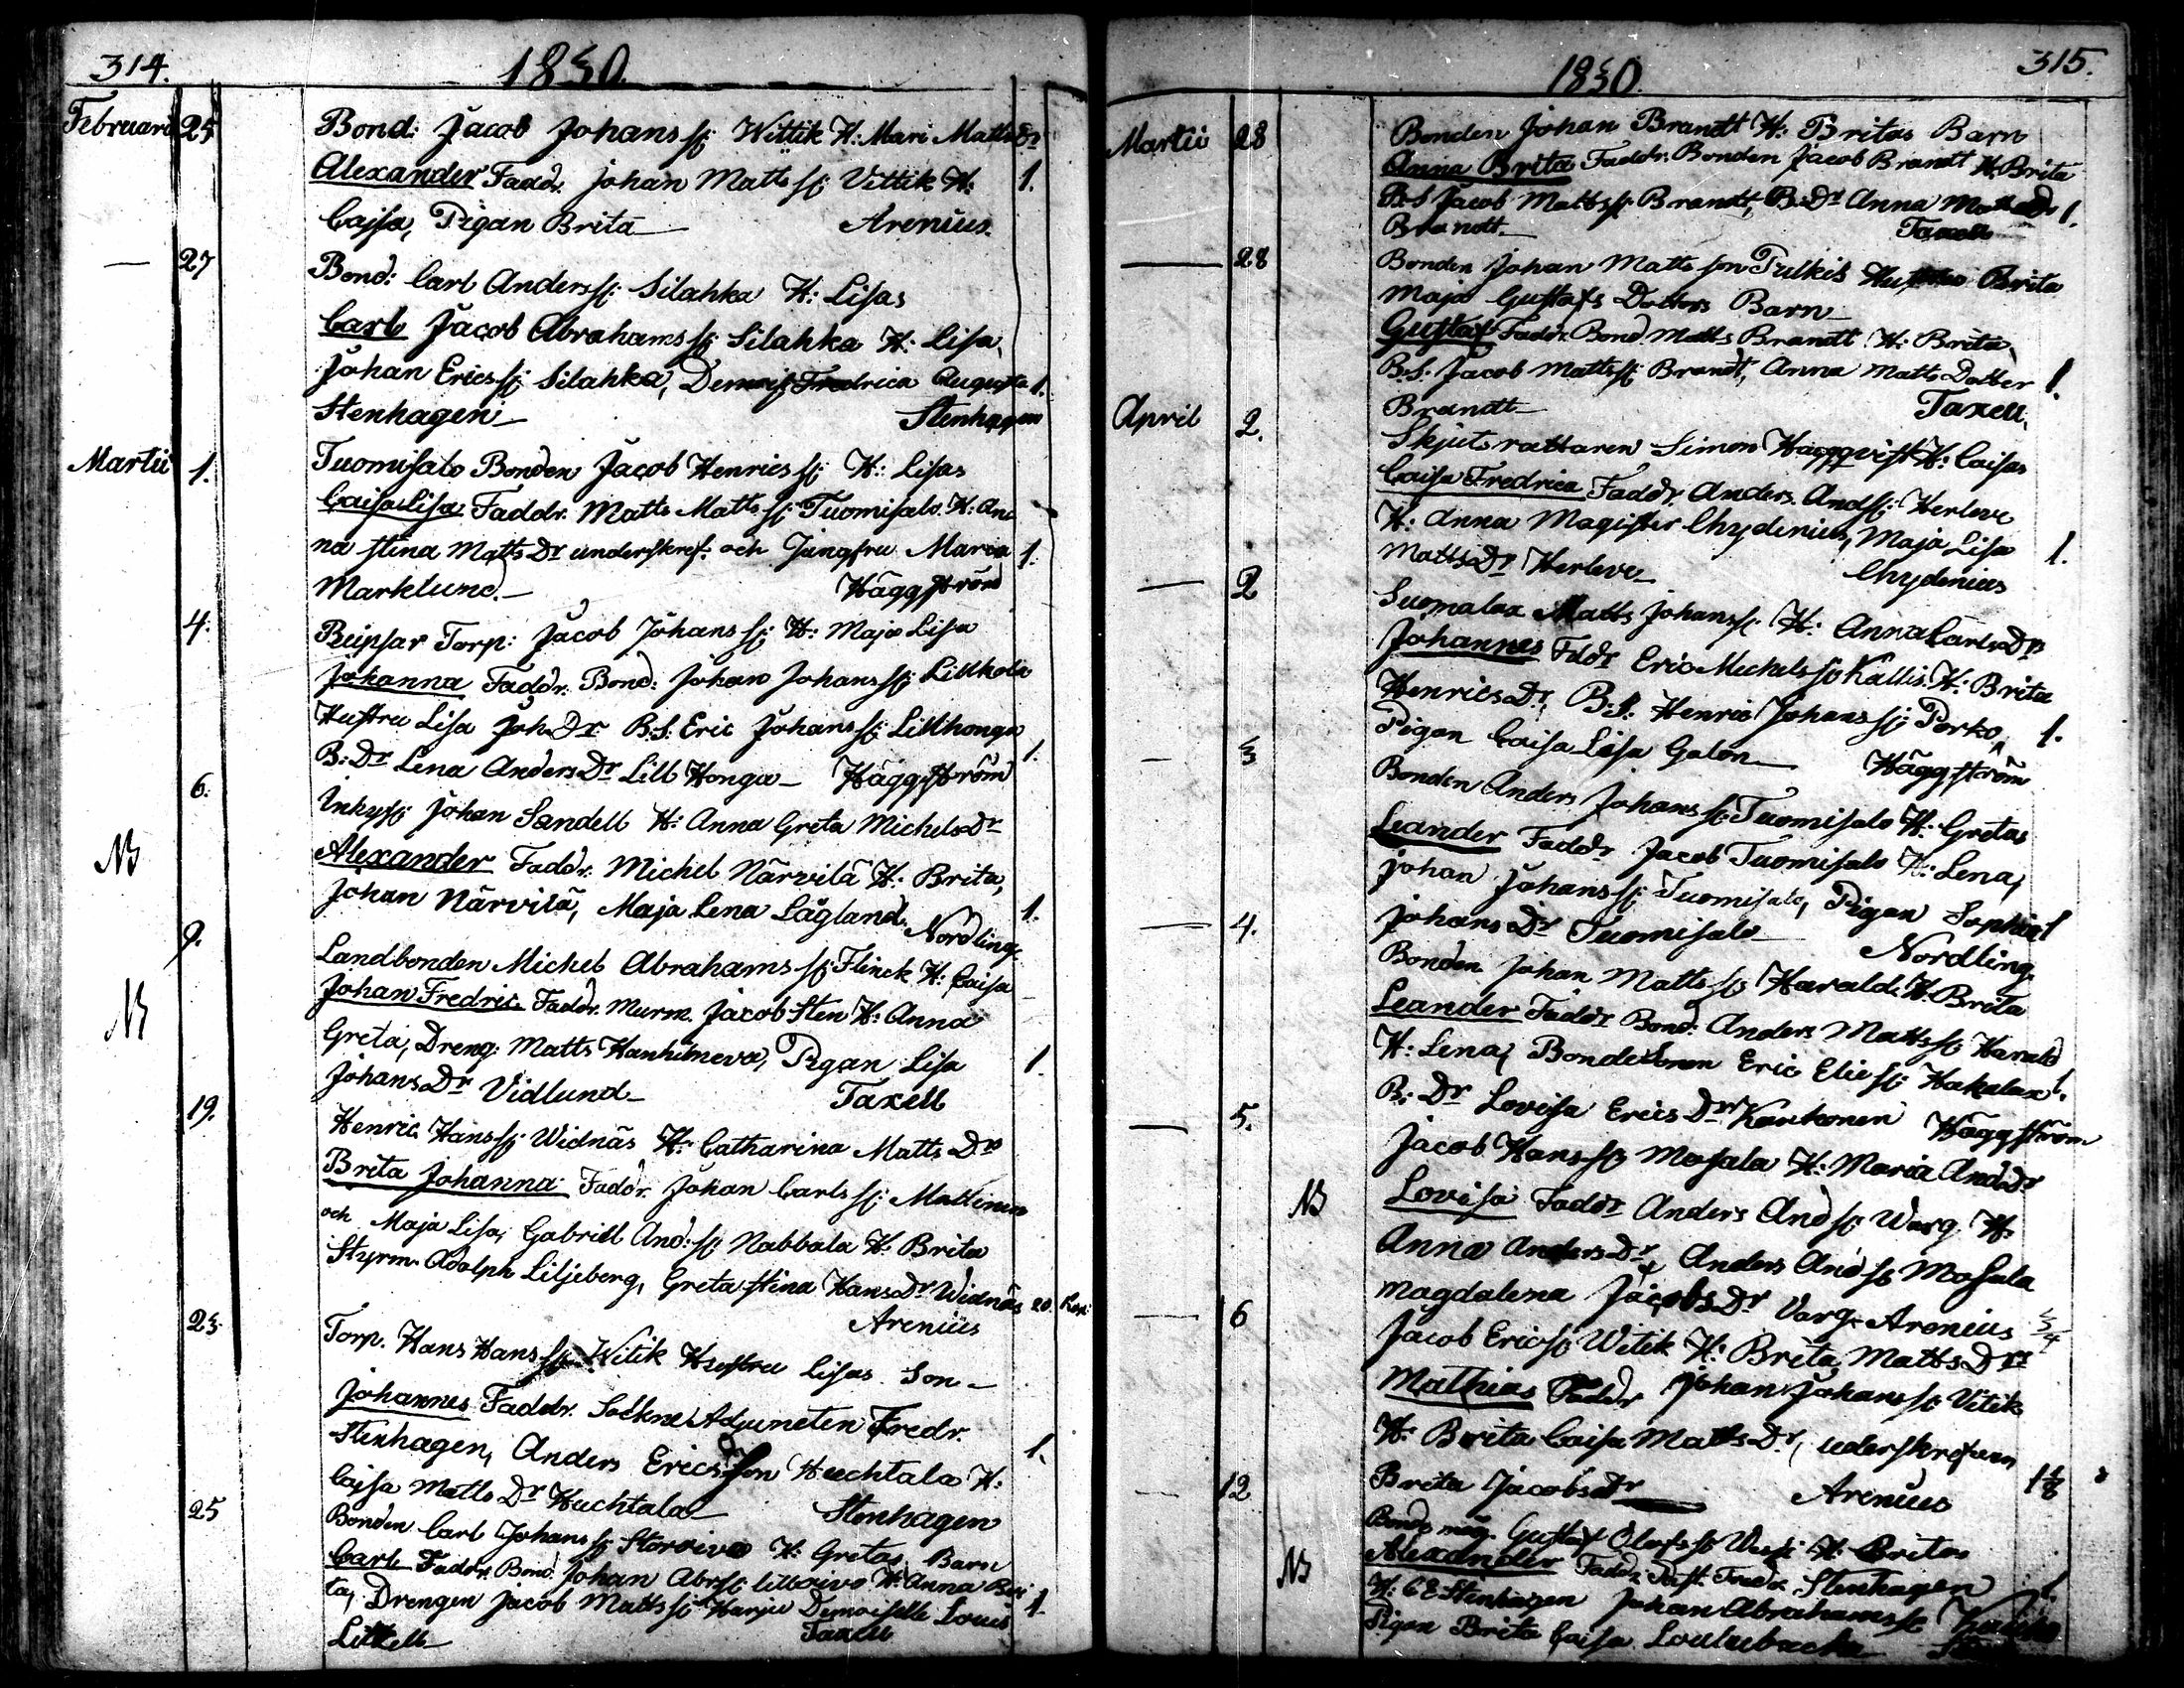 314.
1830.
Februarii 25 Bond: Jacob Johans sn: Wittik H: Mari Mattsdr
Alexander Faddr. Johan Matts sn: Vittik H: 1.
Cajsa, Pigan Brita — Arenius.
— 27 Bond: Carl Anders sn: Silahka H: Lisas
Carl Jacob Abrahams sn: Silahka H: Lisa,
Johan Erics sn: Silahka, Demois Fredrica Augusta 1.
Stenhagen — Stenhagen
Martii 1. Tuomisalo Bonden Jacob Henrics sn: H: Lisas
Caisa Lisa Faddr. Matts Matts sn: Tuomisalo H: An
na Stina Matts Dr underskref: och Jungfru Maria 1.
Marklund. — Häggström
4. Torp: Jacob Johans sn: H: Maja Lisa
Johanna Faddr. Bond: Johan Johans sn:
Hustru Lisa Joh Dr B.S. Eric Johans sn: Lillhonga
B: Dr Lena Anders Dr Lill Honga — Häggström 1.
6. Inhys: Johan Sandell H: Anna Greta Michels Dr
NB Alexander Faddr. Michel Närvilä H: Brita,
Johan Närvilä, Maja Lena Lågland. Nordling. 1.
9. Landbonden Michel Abrahams sn: Flinck H: Caisa
NB Johan Fredric Faddr. Murm. Jacob Sten H: Anna
Greta, Dreng: Matts Kanhineva, Pigan Lisa 1.
Johans Dr Vidlund — Taxell
19. Henric Hans sn: Widnäs H: Catharina Matts Dr
Brita Johanna Faddr. Johan Carls sn:
och Maja Lisa, Gabriell And: sn: Nabbala H: Brita
Styrm. Adolph Liljeberg, Greta Stina Hans Dr Widnäs 20. Kop:
Arenius
23. Torp. Hans Hans sn: Witik Hustru Lisas Son —
Johannes Faddr. Sockne Adjuncten Fredr.
Stenhagen, Anders Ericsson Huchtala H: 1.
Cajsa Matts Dr Huchtala — Stenhagen
25 Bonden Carl Johans sn: Storoivo H: Gretas Barn
Carl Faddr. Bond. Johan Abr sn: Lilloivo H: Anna Bri
ta, Drengen Jacob Matts sn: Harju Demoiselle Louis 1
— Taxell
315.
1830.
Martii 28 Bonden Johan Brandt H: Britas Barn
Anna Brita Faddr. Bonden Jacob Brandt H: Brita
B.S Jacob Matts sn: Brandt, B: Dr Anna Matts Dr 1.
Brandt. — Taxell
— 28 Bonden Johan Matts son Pulkis Hustrus Brita
Maja Gustafs Dotters Barn —
Gustaf Faddr. Bond. Matts Brandt H: Brita,
B.S. Jacob Matts sn: Brandt, Anna Matts Dotter 1.
Brandt — Taxell.
April 2. Skjutsrättaren Simon Häggqvist H: Caisas
Caisa Fredrica Faddr. Anders And sn: Herleve
H: Anna Magister Chydenius, Maja Lisa 1.
Matts Dr Herleve — Chydenius
— 2 Matts Johans sn: H: Anna Carls Dr
Johannes Fddr Eric Michels sn: Kallis H: Brita
Henrics Dr, B.S: Henric Johans sn: Porko, 1.
Pigan Caisa Lisa Galon — Häggström
— 3 Bonden Anders Johans sn: Tuomisalo H: Gretas
Leander Faddr Jacob Tuomisalo H: Lena,
Johan Johans sn: Tuomisalo, Pigan Sophia 1
Johans Dr Tuomisalo — Nordling.
— 4. Bonden Johan Matts sn: Harald. H: Brita
Leander Faddr Bond: Anders Matts sn: Harald
H: Lena, Bondesonen Eric Elie sn: Hakalax 1.
B: Dr Lovisa Erics Dr Karkonen Häggström
— 5. Jacob Hans sn: Mosala H: Maria And. Dr
NB Lovisa Faddr Anders And sn: Warg H:
Anna Anders Dr, Anders And sn: Mosala
Magdalena Jacobs Dr Varg. Arenius 3/4
— 6 Jacob Erics sn: Witik H: Brita Matts Dr
Mathias Faddr Johan Johans sn: Vitik
H: Brita Caisa Matts Dr, uderskrefven
Brita Jacobs Dr — Arenius 1 1/8
— 12 Bonde måg. Gustaf Olofs sn: H: Britas
NB Alexander Faddr Past. Fredr. Stenhagen 1.
H: C E Stenhagen Johan Abrahams sn:
Pigan Brita Caisa